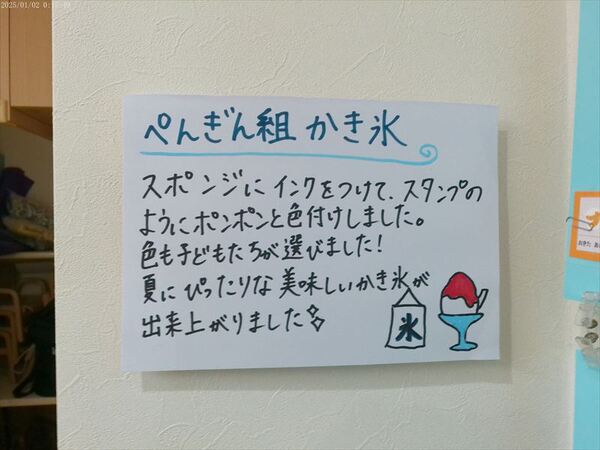 ぺんぎん組 かき氷
スポンジにインクをつけて、スタンプの
ようにポンポンと色付けしました。
色も子どもたちが選びました!
夏にぴったりな美味しいかき氷が
出来上がりました
氷